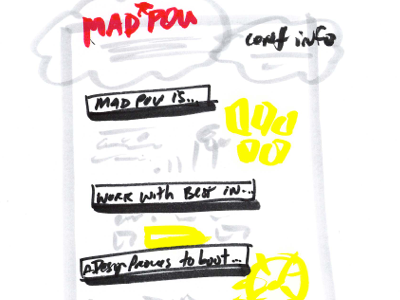 MAD POV
conf info
MAD POV IS...
WORK WITH BEST IN...
A Design Process to boot...